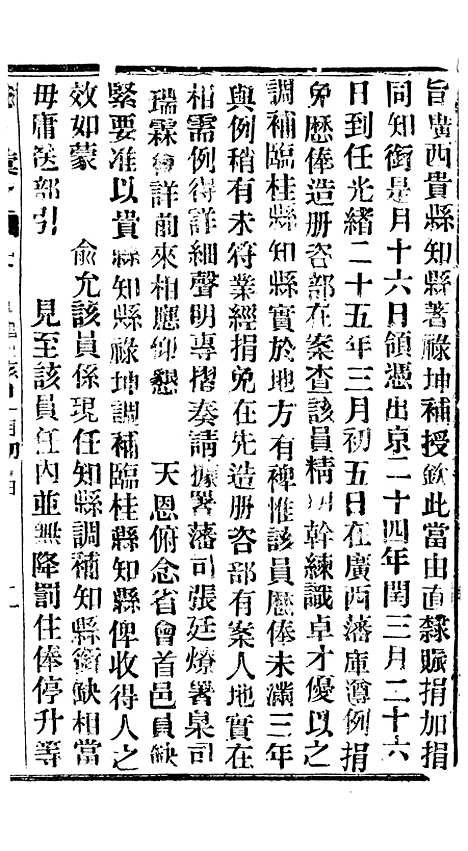 旨廣西貴縣知縣著祿坤補授欽此當由直隸賑捐加捐
同知銜是月十六日領憑出京二十四年閏三月二十六
日到任光緒二十五年三月初五日在廣西藩庫遵例捐
免歷俸造册咨部在案查該員精明幹練識卓才優以之
調補臨桂縣知縣實於地方有裨惟該員歷俸未滿三年
與例稍有未符業經捐免在先造册咨部有案人地實在
相需例得詳細聲明專摺奏請據署藩司張廷燎署臬司
瑞霖會詳前來相應仰懇　天恩俯念省會首邑員缺
緊要准以貴縣知縣祿坤調補臨桂縣知縣俾收得人之
效如蒙　俞允該員係現任知縣調補知縣銜缺相當
毋庸送部引　見至該員任內並無降罰住俸停升等